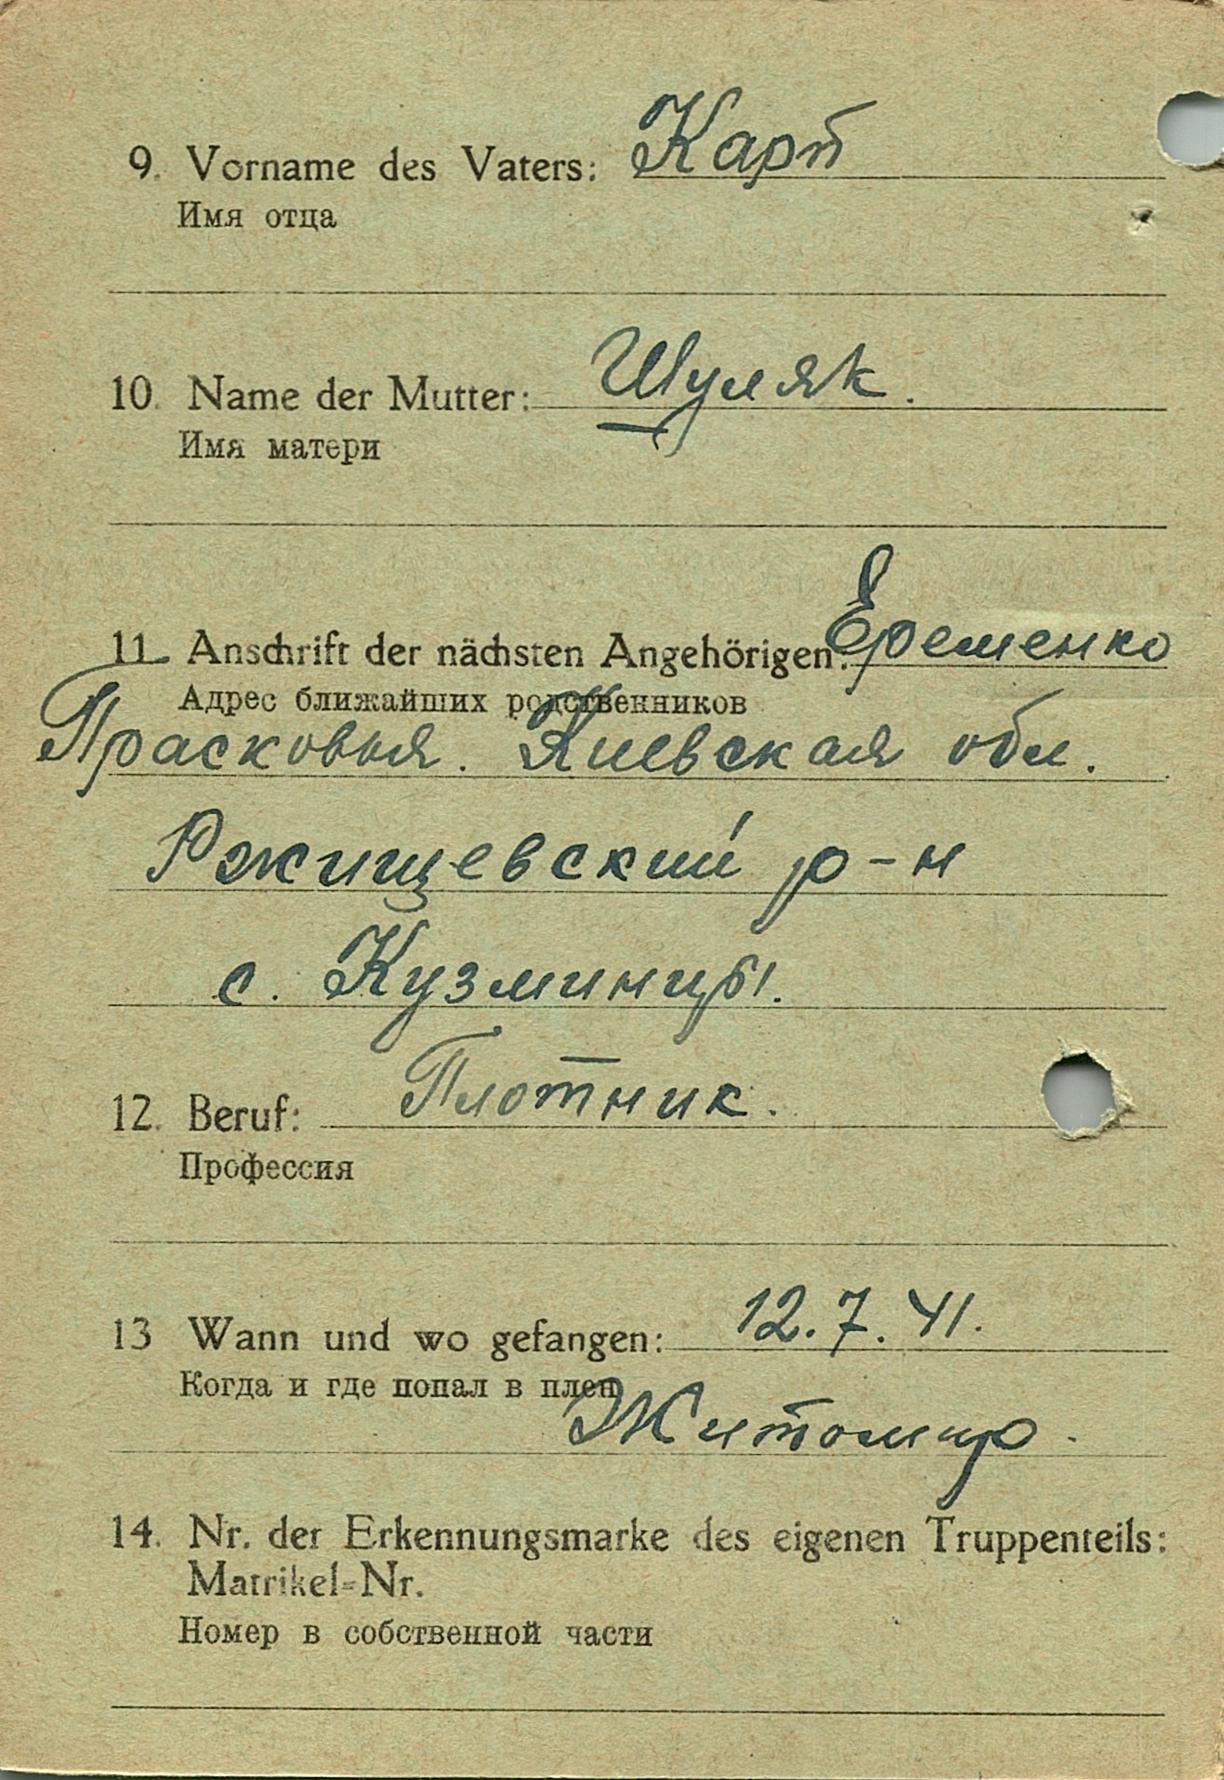 9. Vorname des Vaters: Карп
Имя отца
10. Name der Mutter: Шуляк.
Имя матери
11. Anschrift der nächsten Angehörigen: Еременко
Адрес ближайших родственников
Прасковья. Киевская обл.
Ржищевский р-н
с. Кузминцы.
12. Beruf: Плотник.
Профессия
13 Wann und wo gefangen: 12.7.41.
Когда и где попал в плен
Житомир.
14. Nr. der Erkennungsmarke des eigenen Truppenteils:
Matrikel-Nr.
Номер в собственной части